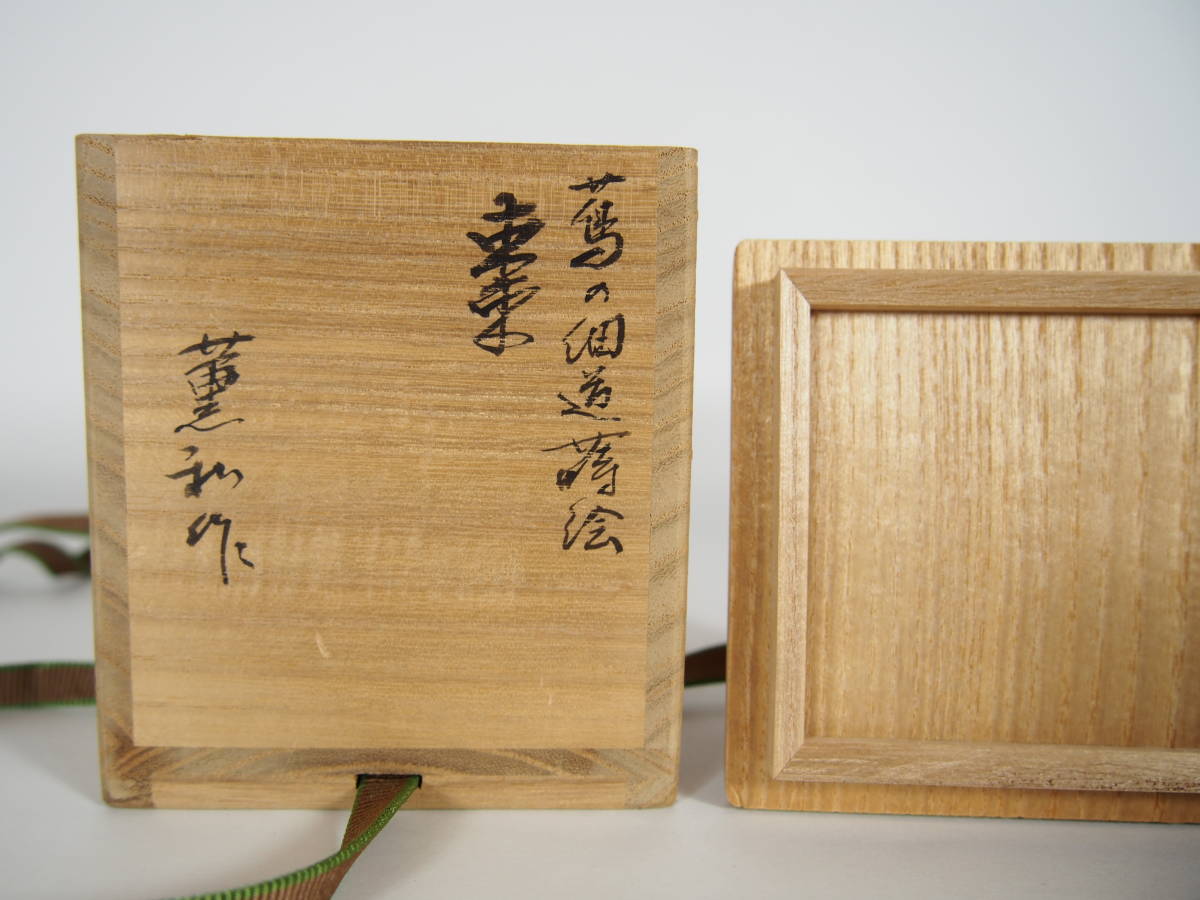 蔦の細道蒔絵
棗
薫和作